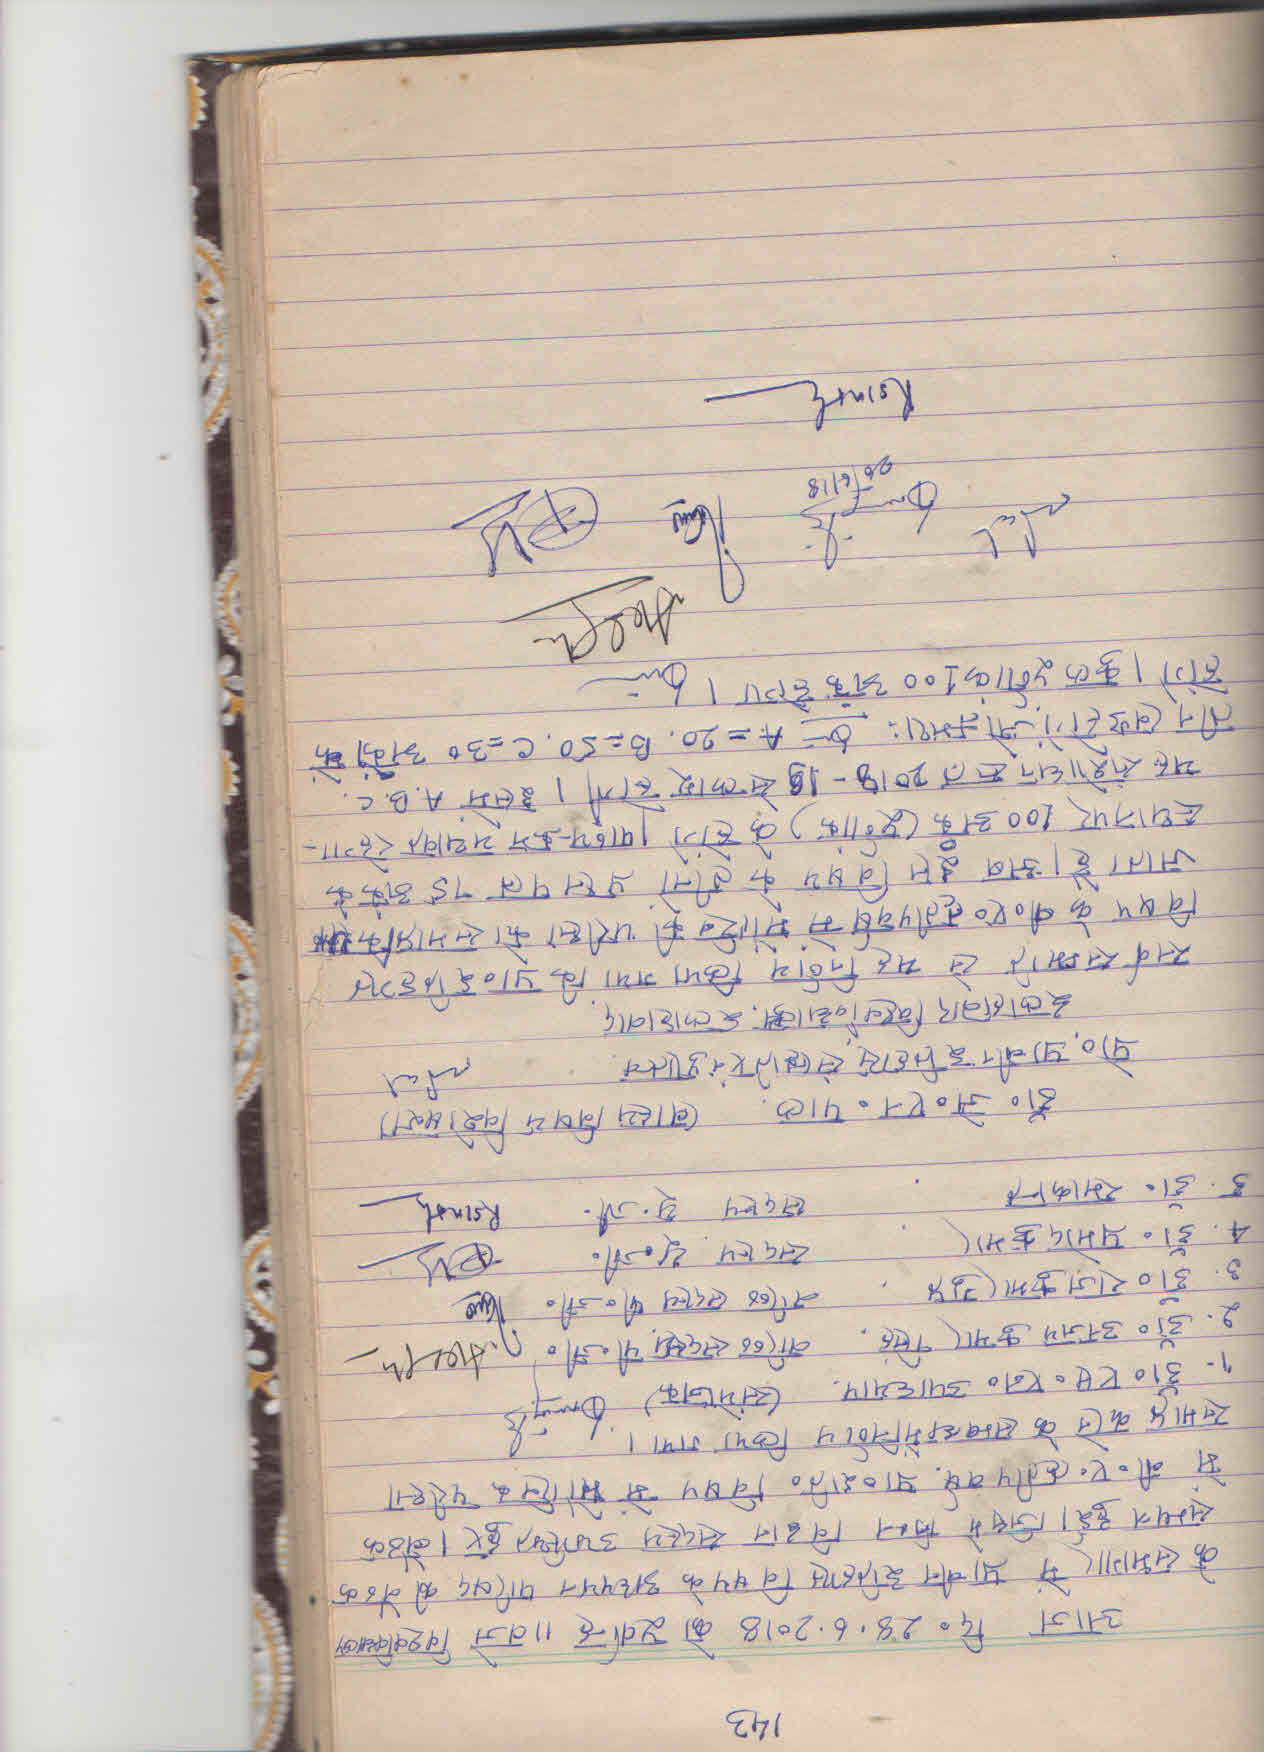 143
आज दि० 28.6.2018 को पूर्वान्ह 11 वजे विश्वविद्यालय
के सभागार में प्राचीन इतिहास विषय के अध्ययन परिषद की वैठक
सम्पन्न हुई। जिसमे निम्न विद्वान सदस्य उपस्थित हुए। बैठक
में वी०ए० तृतीय वर्ष. प्रा०इति० विषय में मौखिक परीक्षा
समाप्त करने के सम्बन्ध में निर्णय लिया गया।
1. डॉ० एस० एन० उपाध्याय. (संयोजक)
2. डॉ० अजय कुमार सिंह. वरिष्ठ सदस्य पी०जी०
3. डॉ० राज कुमार गुप्त . वरिष्ठ सदस्य पी०जी०
4. डॉ० प्रमोद कुमार . सदस्य यू०जी०
5. डॉ० रमाकान्त . सदस्य यू०जी०
डॉ० जे०एन० पाल. (वाह्य विषय विशेषज्ञ)
प्रो०, प्राचीन इतिहास, संस्कृति एवं पुरातत्व.
इलाहावाद विश्वविद्यालय, इलाहावाद.
सर्व सम्मति से यह निर्णय लिया गया कि प्रा० इतिहास
विषय के बी०ए० तृतीय वर्ष में मौखिकी परीक्षा को समाप्त किया
जाता है। अब इस विषय के तीनों प्रश्न पत्र 75 अंक के
स्थान पर 100 अंक (पूर्णांक) के होंगे। पाठ्य-क्रम यथावत रहेगा-
यह संशोधन सत्र 2018-19 से लागू होगी। इसमें A.B.C.
तीन खण्ड होगें, जो क्रमशः A = 20. B = 50. C = 30 अंको के
होंगे। कुल पूर्णांक 100 अंक होगा।